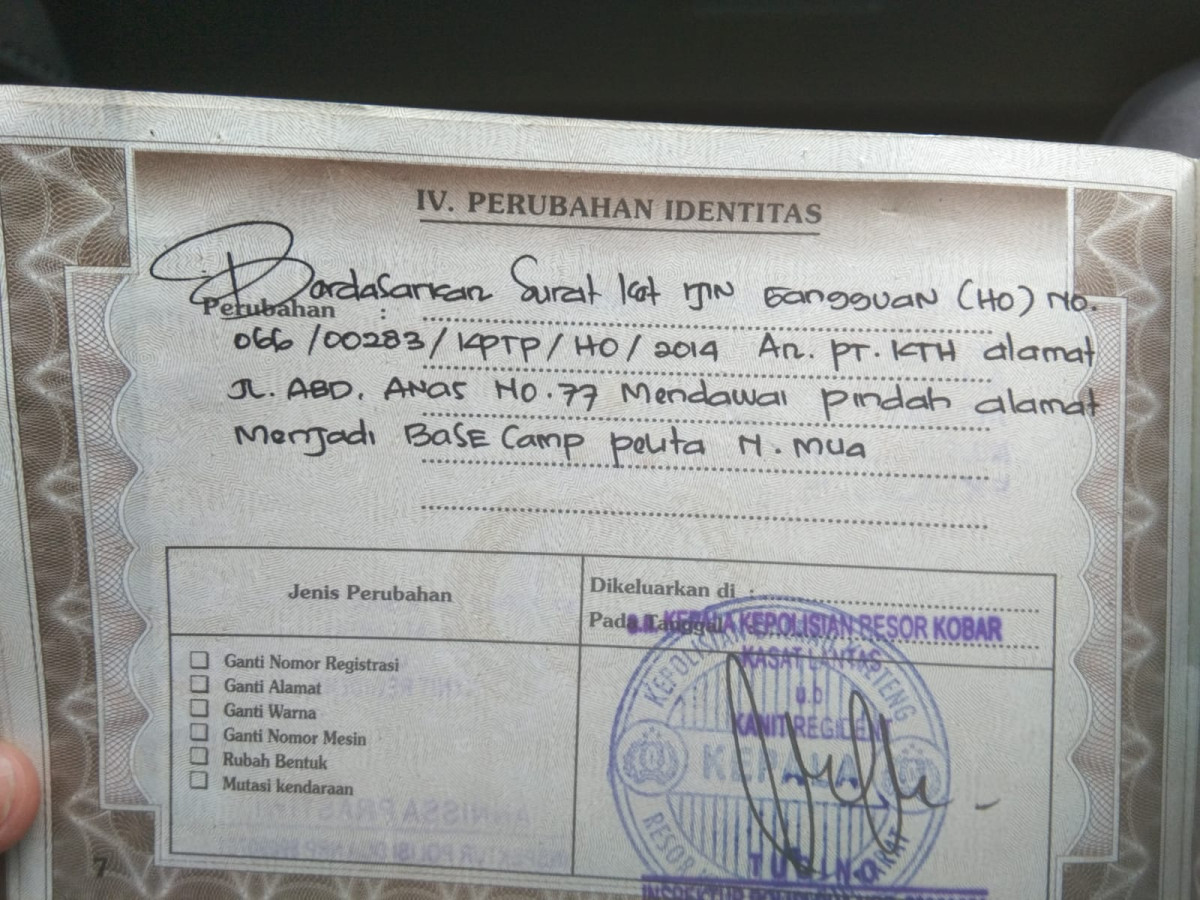 IV. PERUBAHAN IDENTITAS
Perubahan :
Berdasarkan Surat Ket IJIN Gangguan (HO) No.
066/00283/KPTP/HO/2014 An. PT. KTH alamat
JL. ABD. ANAS NO.77 Mendawai pindah alamat
Menjadi BASE Camp pelita N. MUA
Jenis Perubahan
Ganti Nomor Registrasi
Ganti Alamat
Ganti Warna
Ganti Nomor Mesin
Rubah Bentuk
Mutasi kendaraan
Dikeluarkan di :
Pada Tanggal :
KEPALA KEPOLISIAN RESOR KOBAR
KASAT LANTAS
u.b
KANIT REGIDENT
KEPALA
RESOR
TUGINO
INSPEKTUR
7